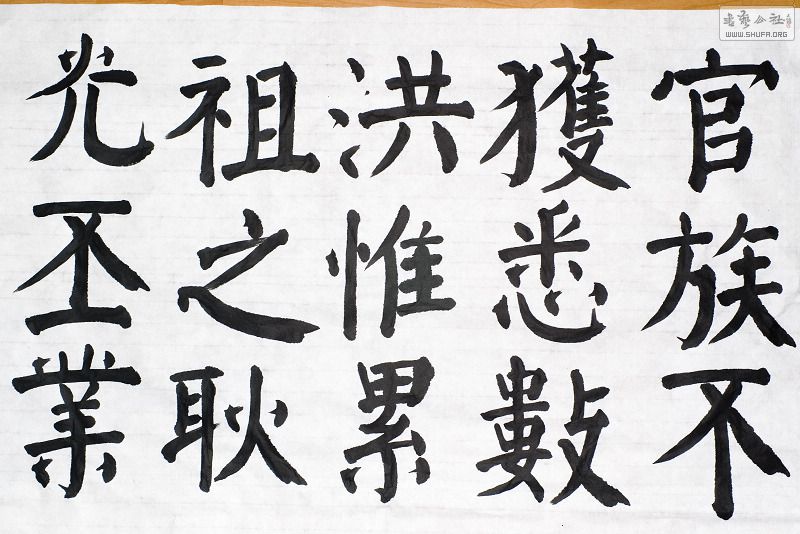 官族不
獲悉數
洪惟累
祖之耿
光丕業
书艺公社
WWW.SHUFA.ORG